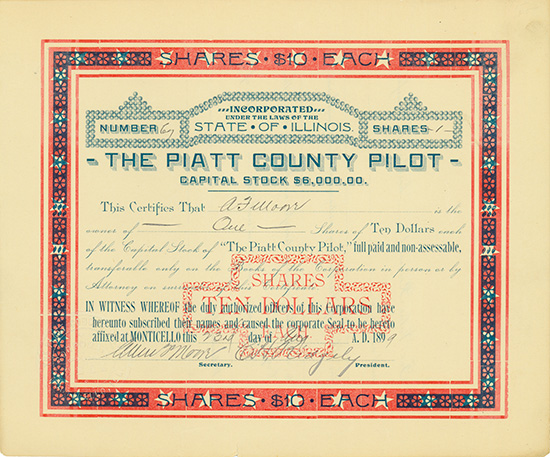 SHARES · $10 · EACH
INCORPORATED
UNDER THE LAWS OF THE
STATE · OF · ILLINOIS.
NUMBER 67
SHARES -1-
- THE PIATT COUNTY PILOT -
CAPITAL STOCK $6,000.00.
This Certifies That A F Moore is the
owner of — One — Shares of Ten Dollars each
of the Capital Stock of "The Piatt County Pilot," full paid and non-assessable,
transferable only on the Books of the Corporation in person or by
Attorney on surrender of this Certificate.
SHARES
TEN DOLLARS
EACH
IN WITNESS WHEREOF the duly authorized officers of this corporation have
hereunto subscribed their names and caused the corporate Seal to be hereto
affixed at MONTICELLO this day of A. D. 189
Allen F Moore
Secretary.
President.
SHARES · $10 · EACH